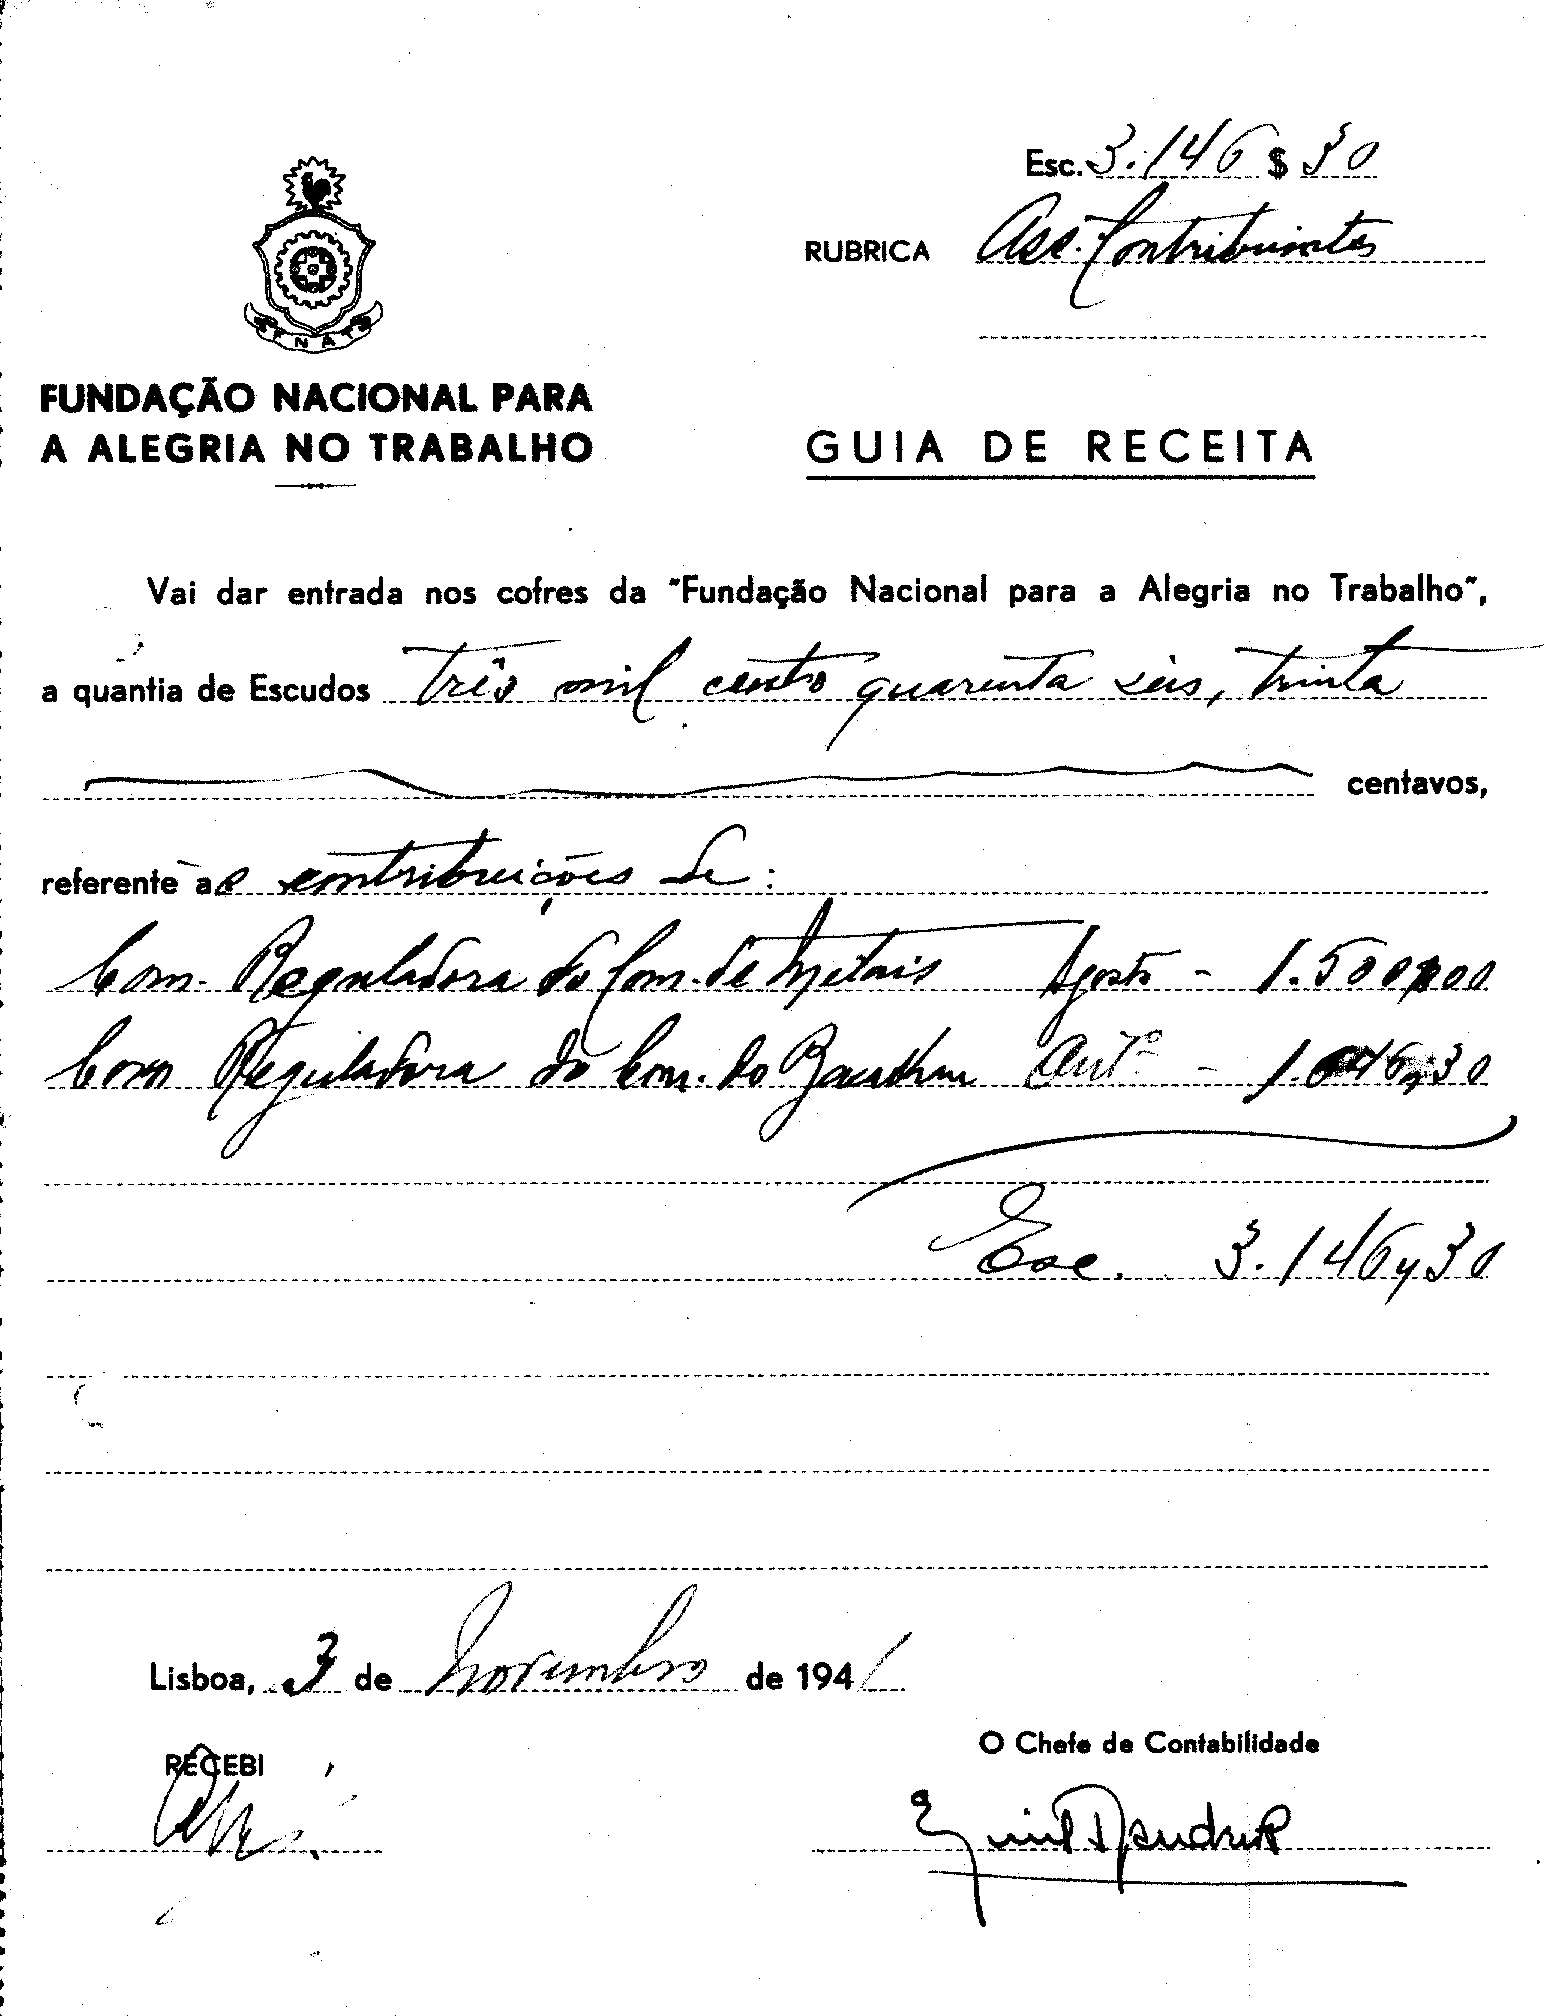 Esc. 3.146 $ 30
RUBRICA Ass. Contribuintes
FNAT
FUNDAÇÃO NACIONAL PARA
A ALEGRIA NO TRABALHO
GUIA DE RECEITA
Vai dar entrada nos cofres da "Fundação Nacional para a Alegria no Trabalho",
a quantia de Escudos três mil cento quarenta seis, trinta
centavos,
referente a contribuições de:
Com. Reguladora do Com. de Metais Agosto - 1.500$00
Com Reguladora do Com. do Bacalhau Outº - 1.646,30
Esc. 3.146,30
Lisboa, 3 de Novembro de 1941
RECEBI
O Chefe de Contabilidade